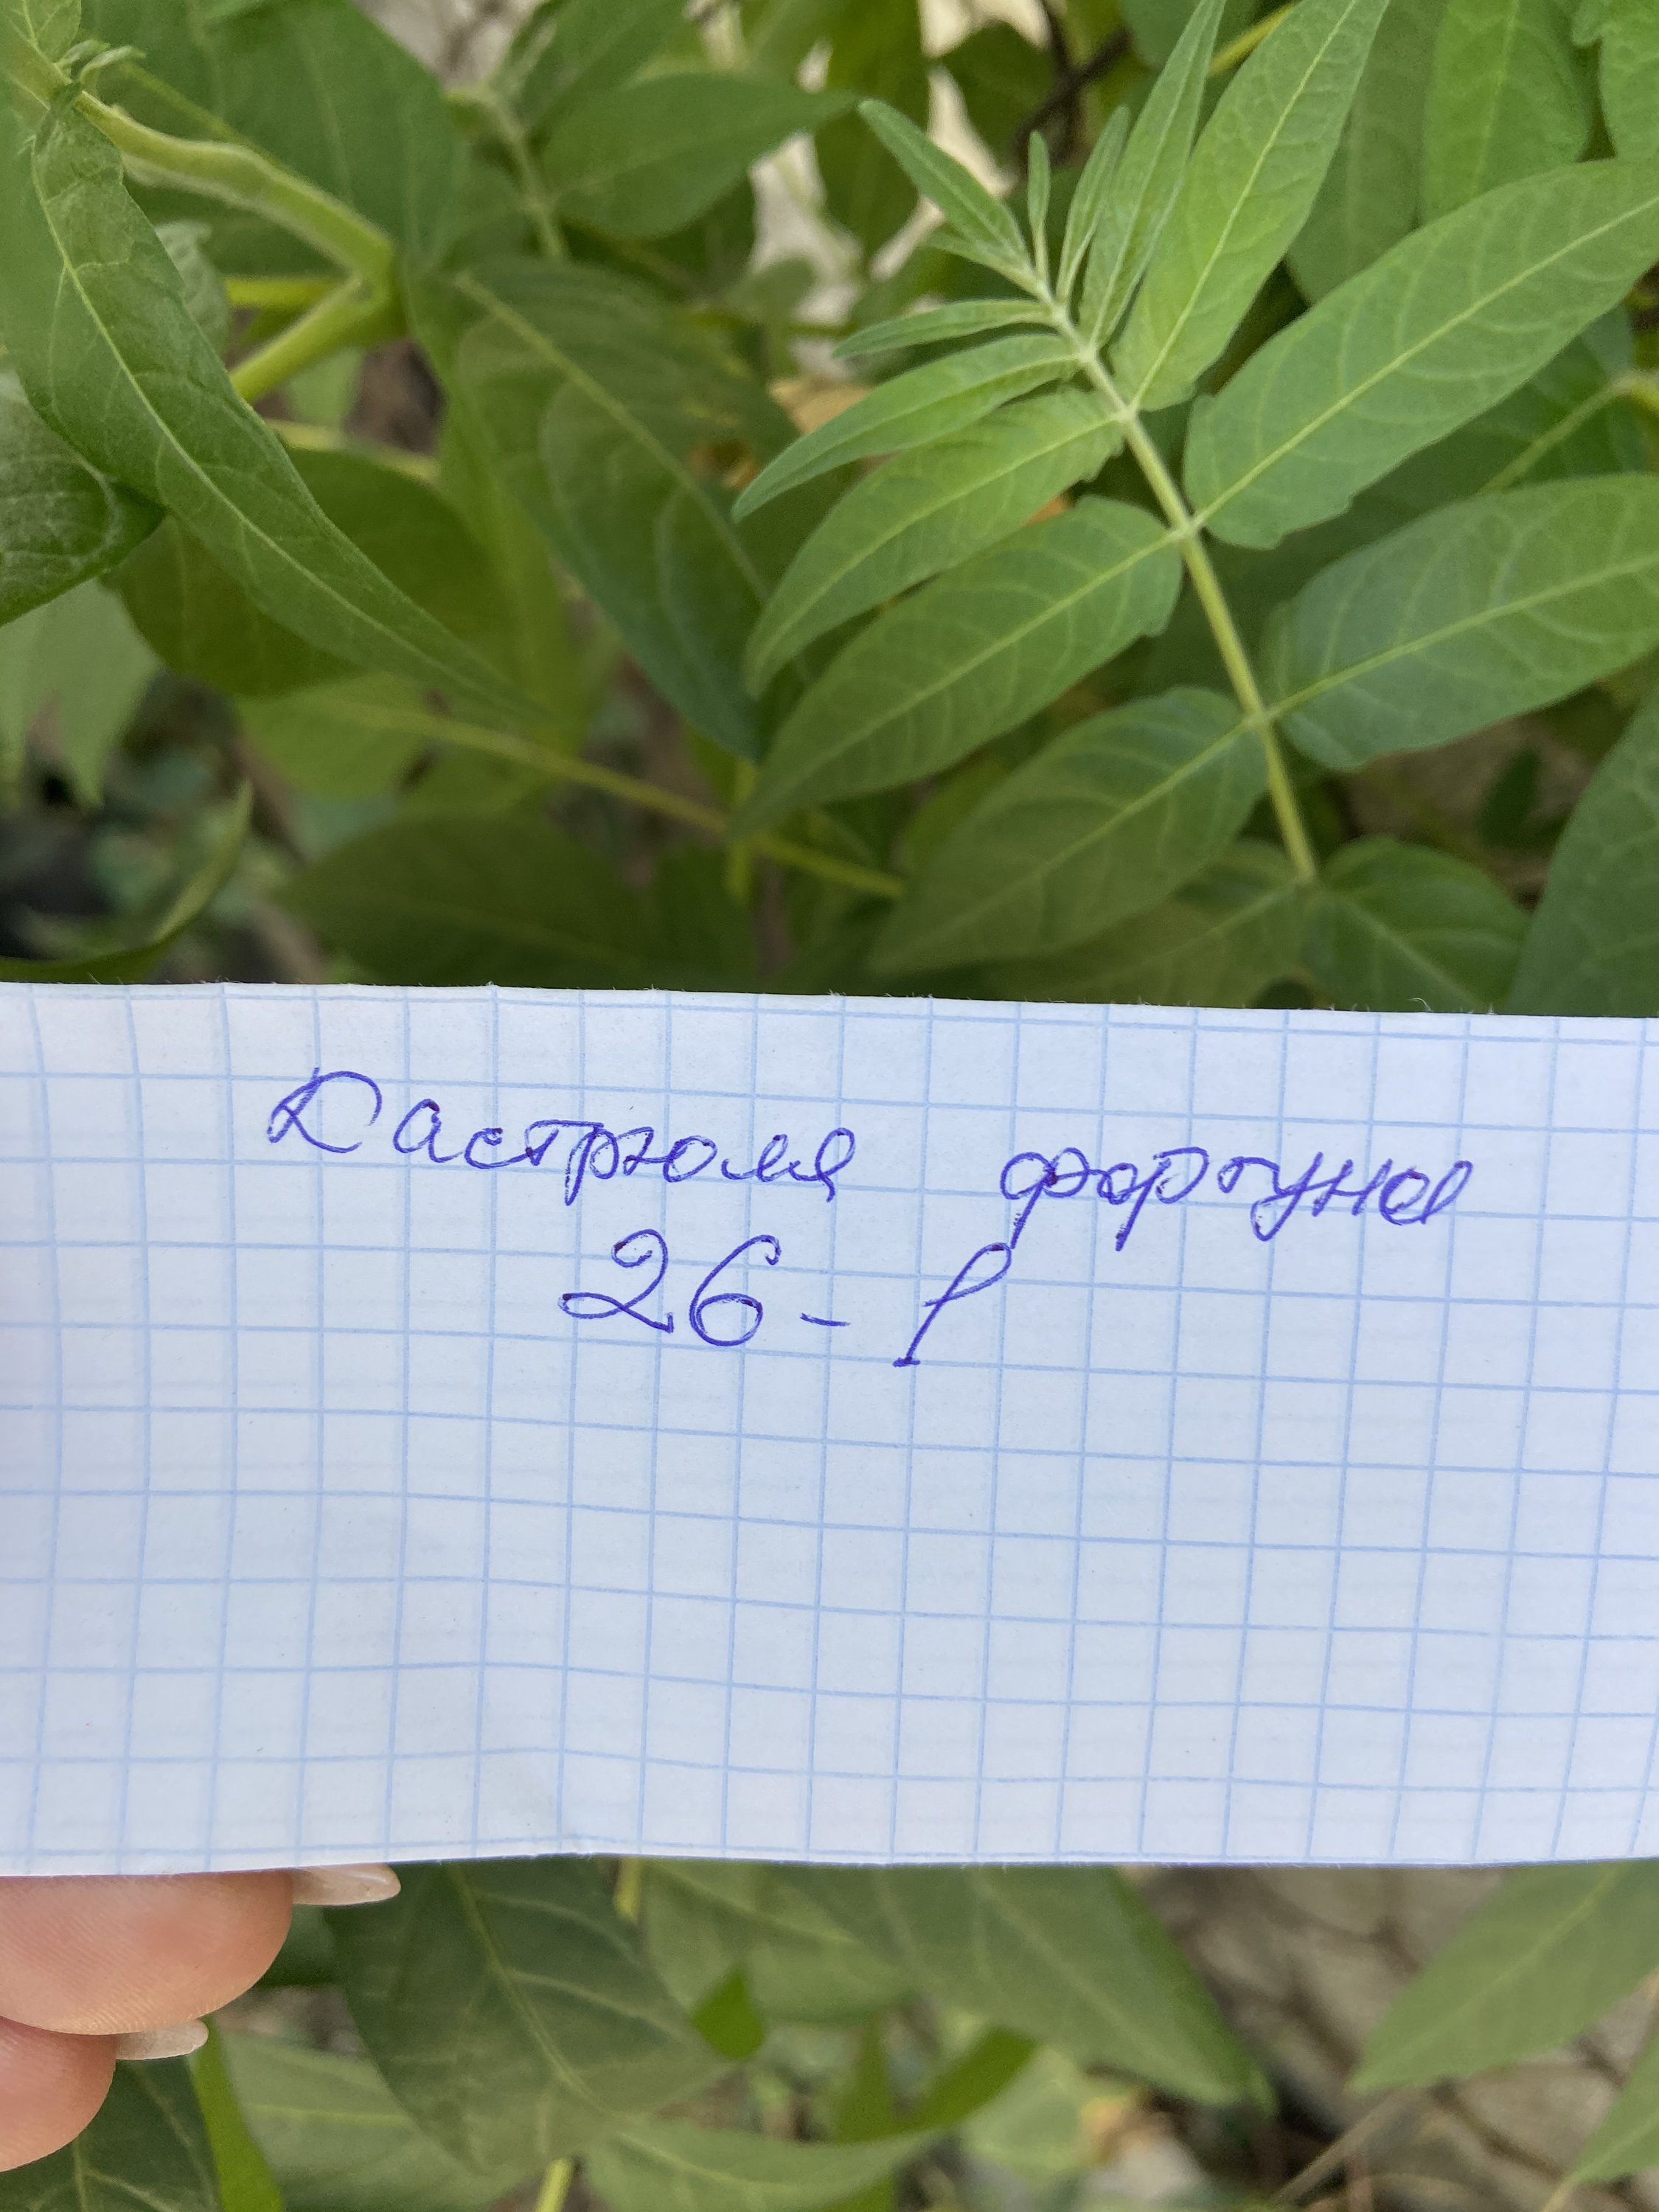 Кастрюля фортуна
26-1